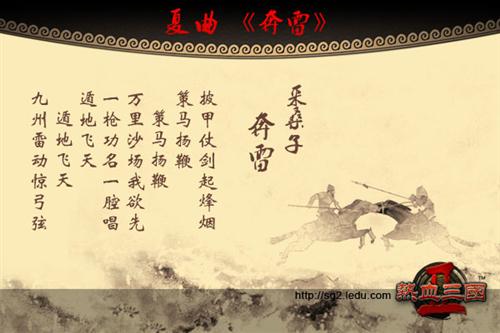 夏曲 《奔雷》
采桑子
奔雷
披甲仗剑起烽烟
策马扬鞭
策马扬鞭
万里沙场我欲先
一枪功名一腔唱
遁地飞天
遁地飞天
九州雷动惊弓弦
熱血三國
II
TM
http://sg2.ledu.com